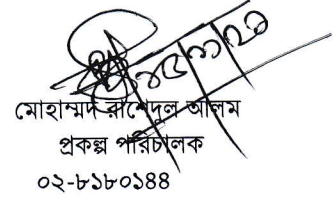 মোহাম্মদ রাশেদুল আলম
প্রকল্প পরিচালক
০২-৮১৮০১৪৪